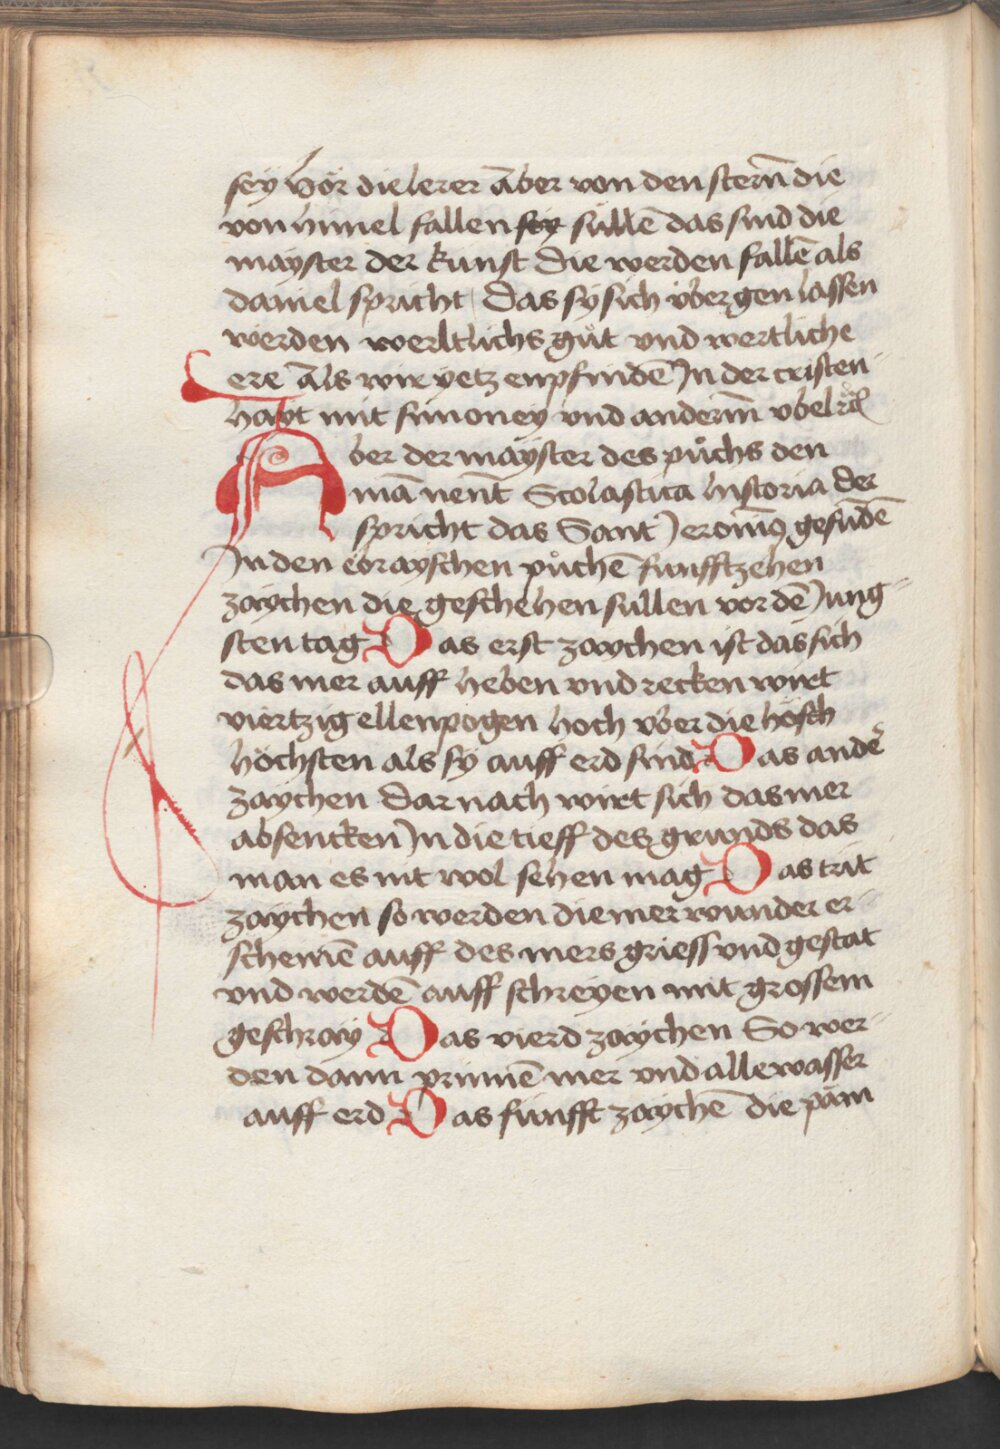 sey hör die lerer Aber von den sterñ die
von himel fallen sey süllē das sind die
mayster der kunst Die werden fallē als
daniel spricht Das sy sich vbergen lassen
werden werltlichs gůt vnd wertliche
ere Als wir yetz enpfindē In der cristen-
hayt mit simoney vnd anderm̄ vbel
Aber der mayster des půchs den
mā nent̄ Scolastica historia der
spricht das Sant Jeronimꝯ gefūdē
In den ebrayschen půchē funfftzehen
zaychen die geschehen sullen vor dē Jung-
sten tag Das erst zaychen ist das sich
das mer auff heben vnd recken wirt
viertzig ellenpogen hoch vber die hösch
höchsten als sy auff erd sind Das ander
zaychen Darnach wirt sich das mer
absencken In die tieff des grunds das
man es nit wol sehen mag Das trit
zaychen so werden die mer wunder er
scheinē auff des mers griess vnd gestat
vnd werdē auff schreyen mit grossem
geschray Das vierd zaychen So wer-
den dann prinnē mer vnd alle wasser
auff erd Das funfft zaychē die päm